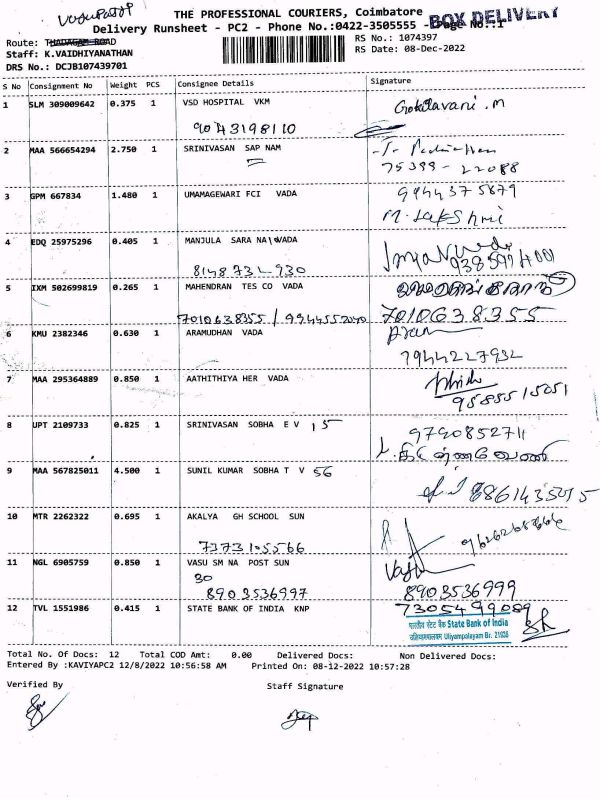 THE PROFESSIONAL COURIERS, Coimbatore
Delivery Runsheet - PC2 - Phone No.:0422-3505555 - Page No.:1
BOX DELIVERY
Route: THADAGAM ROAD
RS No.: 1074397
Staff: K.VAIDHIYANATHAN
RS Date: 08-Dec-2022
DRS No.: DCJB107439701
S No Consignment No Weight PCS Consignee Details Signature
1 SLM 309009642 0.375 1 VSD HOSPITAL VKM
Gokilavani.M
9043198110
2 MAA 566654294 2.750 1 SRINIVASAN SAP NAM
75388-22088
3 GPM 667834 1.480 1 UMAMAGEWARI FCI VADA
9944375879
M.Lakshmi
4 EDQ 25975296 0.405 1 MANJULA SARA NA VADA
8148732930
5 IXM 502699819 0.265 1 MAHENDRAN TES CO VADA
7010638355 / 9944552040 7010638355
6 KMU 2382346 0.630 1 ARAMUDHAN VADA
7944227932
7 MAA 295364889 0.850 1 AATHITHIYA HER VADA
9585515051
8 UPT 2109733 0.825 1 SRINIVASAN SOBHA E V 15
9790852711
9 MAA 567825011 4.500 1 SUNIL KUMAR SOBHA T V 56
8861435015
10 MTR 2262322 0.695 1 AKALYA GH SCHOOL SUN
7373105566
11 NGL 6905759 0.850 1 VASU SM NA POST SUN
Vasu
30
8903536997 8903536999
12 TVL 1551986 0.415 1 STATE BANK OF INDIA KNP
7305499089
भारतीय स्टेट बैंक State Bank of India
Uliyampalayam Br. 21936
Total No. Of Docs: 12 Total COD Amt: 0.00 Delivered Docs: Non Delivered Docs:
Entered By :KAVIYAPC2 12/8/2022 10:56:58 AM Printed On: 08-12-2022 10:57:28
Verified By Staff Signature